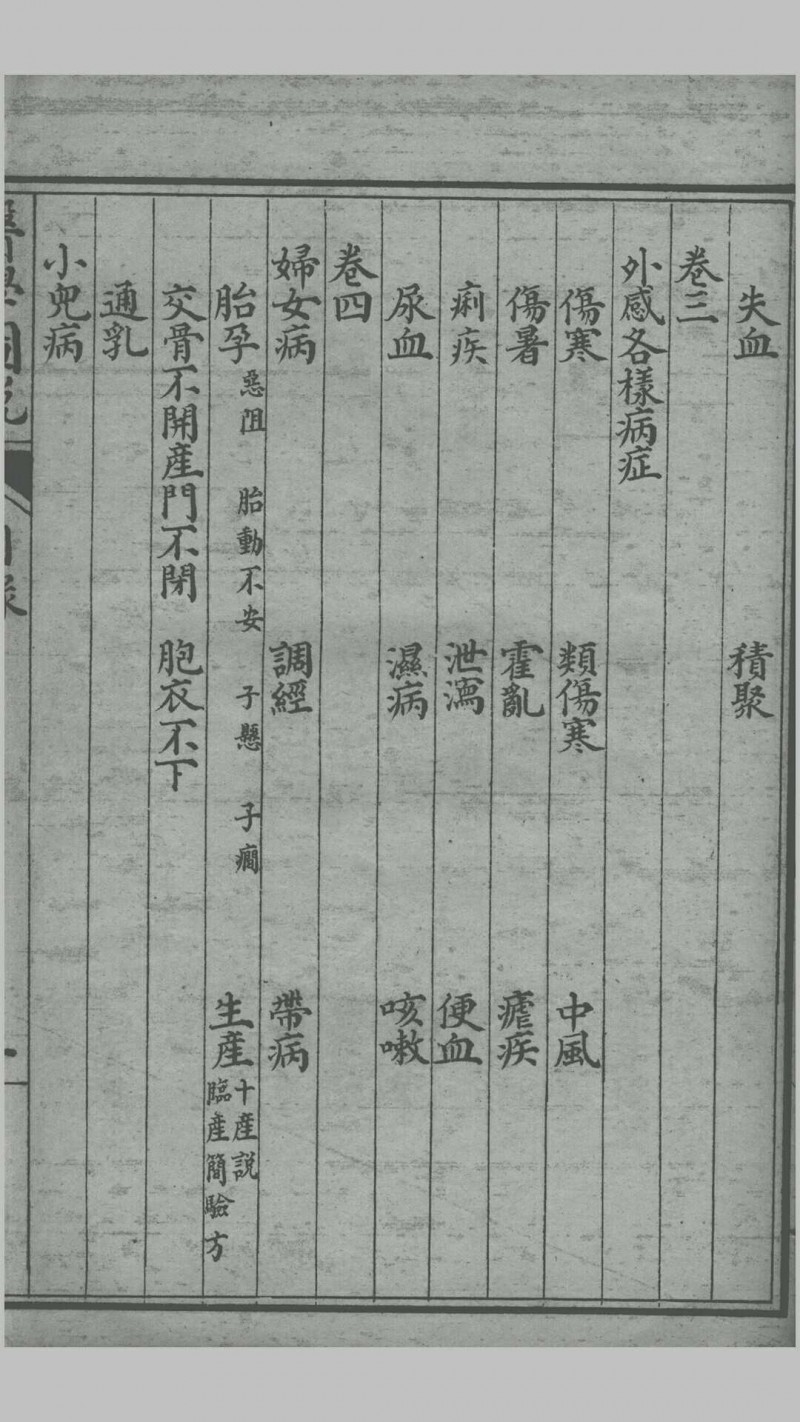 失血　積聚
卷三
外感各樣病症
傷寒　類傷寒　中風
傷暑　霍亂　瘧疾
痢疾　泄瀉　便血
尿血　濕病　咳嗽
卷四
婦女病　調經　帶病
胎孕　惡阻　胎動不安　子懸　子癎　生産　十產説　臨產簡驗方
交骨不開産門不閉　胞衣不下
通乳
小兒病